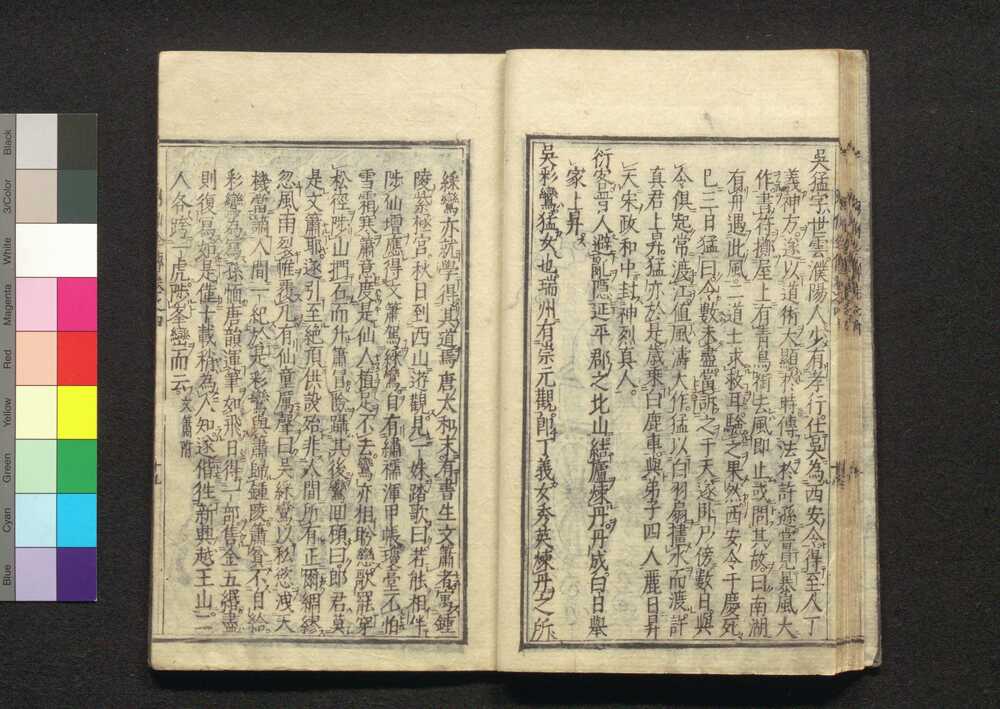 吳猛字世雲濮陽人少有孝行仕吳為西安令得至人丁
義神方遂以道術大顯於時傳法於許孫嘗見暴風大
作書符擲屋上有青鳥銜去風即止或問其故曰南湖
有舟遇此風二道士求救耳驗之果然西安令干慶死
巳三日猛曰令數未盡當訴之于天遂臥尸傍數日與
令俱起常渡江值風濤大作猛以白羽扇畫水而渡許
真君上昇猛亦於是歲乘白鹿車與弟子四人麗日昇
天宋政和中封神烈真人
行客晉人避亂隱延平郡之北山結廬煉丹丹成白日舉
家上昇
吳彩鸞猛女也瑞州有崇元觀即丁義女秀英煉丹之所
綵鸞亦就學得其道焉唐太和末有書生文蕭者寓鍾
陵紫極宮秋日到西山遊觀見一姝踏歌曰若能相伴
陟仙壇應得文蕭駕綵鸞自有繡襦渾甲帳瓊臺不怕
雪霜寒蕭意度是仙人植足不去鸞亦相盼戀歌罷穿
松徑陟山捫石而升蕭冒險躡其後鸞回頭曰郎君莫
是文蕭耶遂引至絕頂供設殆非人間所有正爾綢繆
忽風雨裂帷覆几有仙童厲聲曰吳綵鸞以私慾洩天
機當謫人間一紀於是彩鸞與蕭歸鍾陵蕭貧不自給
彩鸞為寫孫愐唐韻運筆如飛日得一部售金五緡盡
則復寫如是僅十載稍為人知遂偕往新興越王山二
人各跨一虎陟峯巒而去文蕭附
Black
3/Color
White
Magenta
Red
Yellow
Green
Cyan
Blue